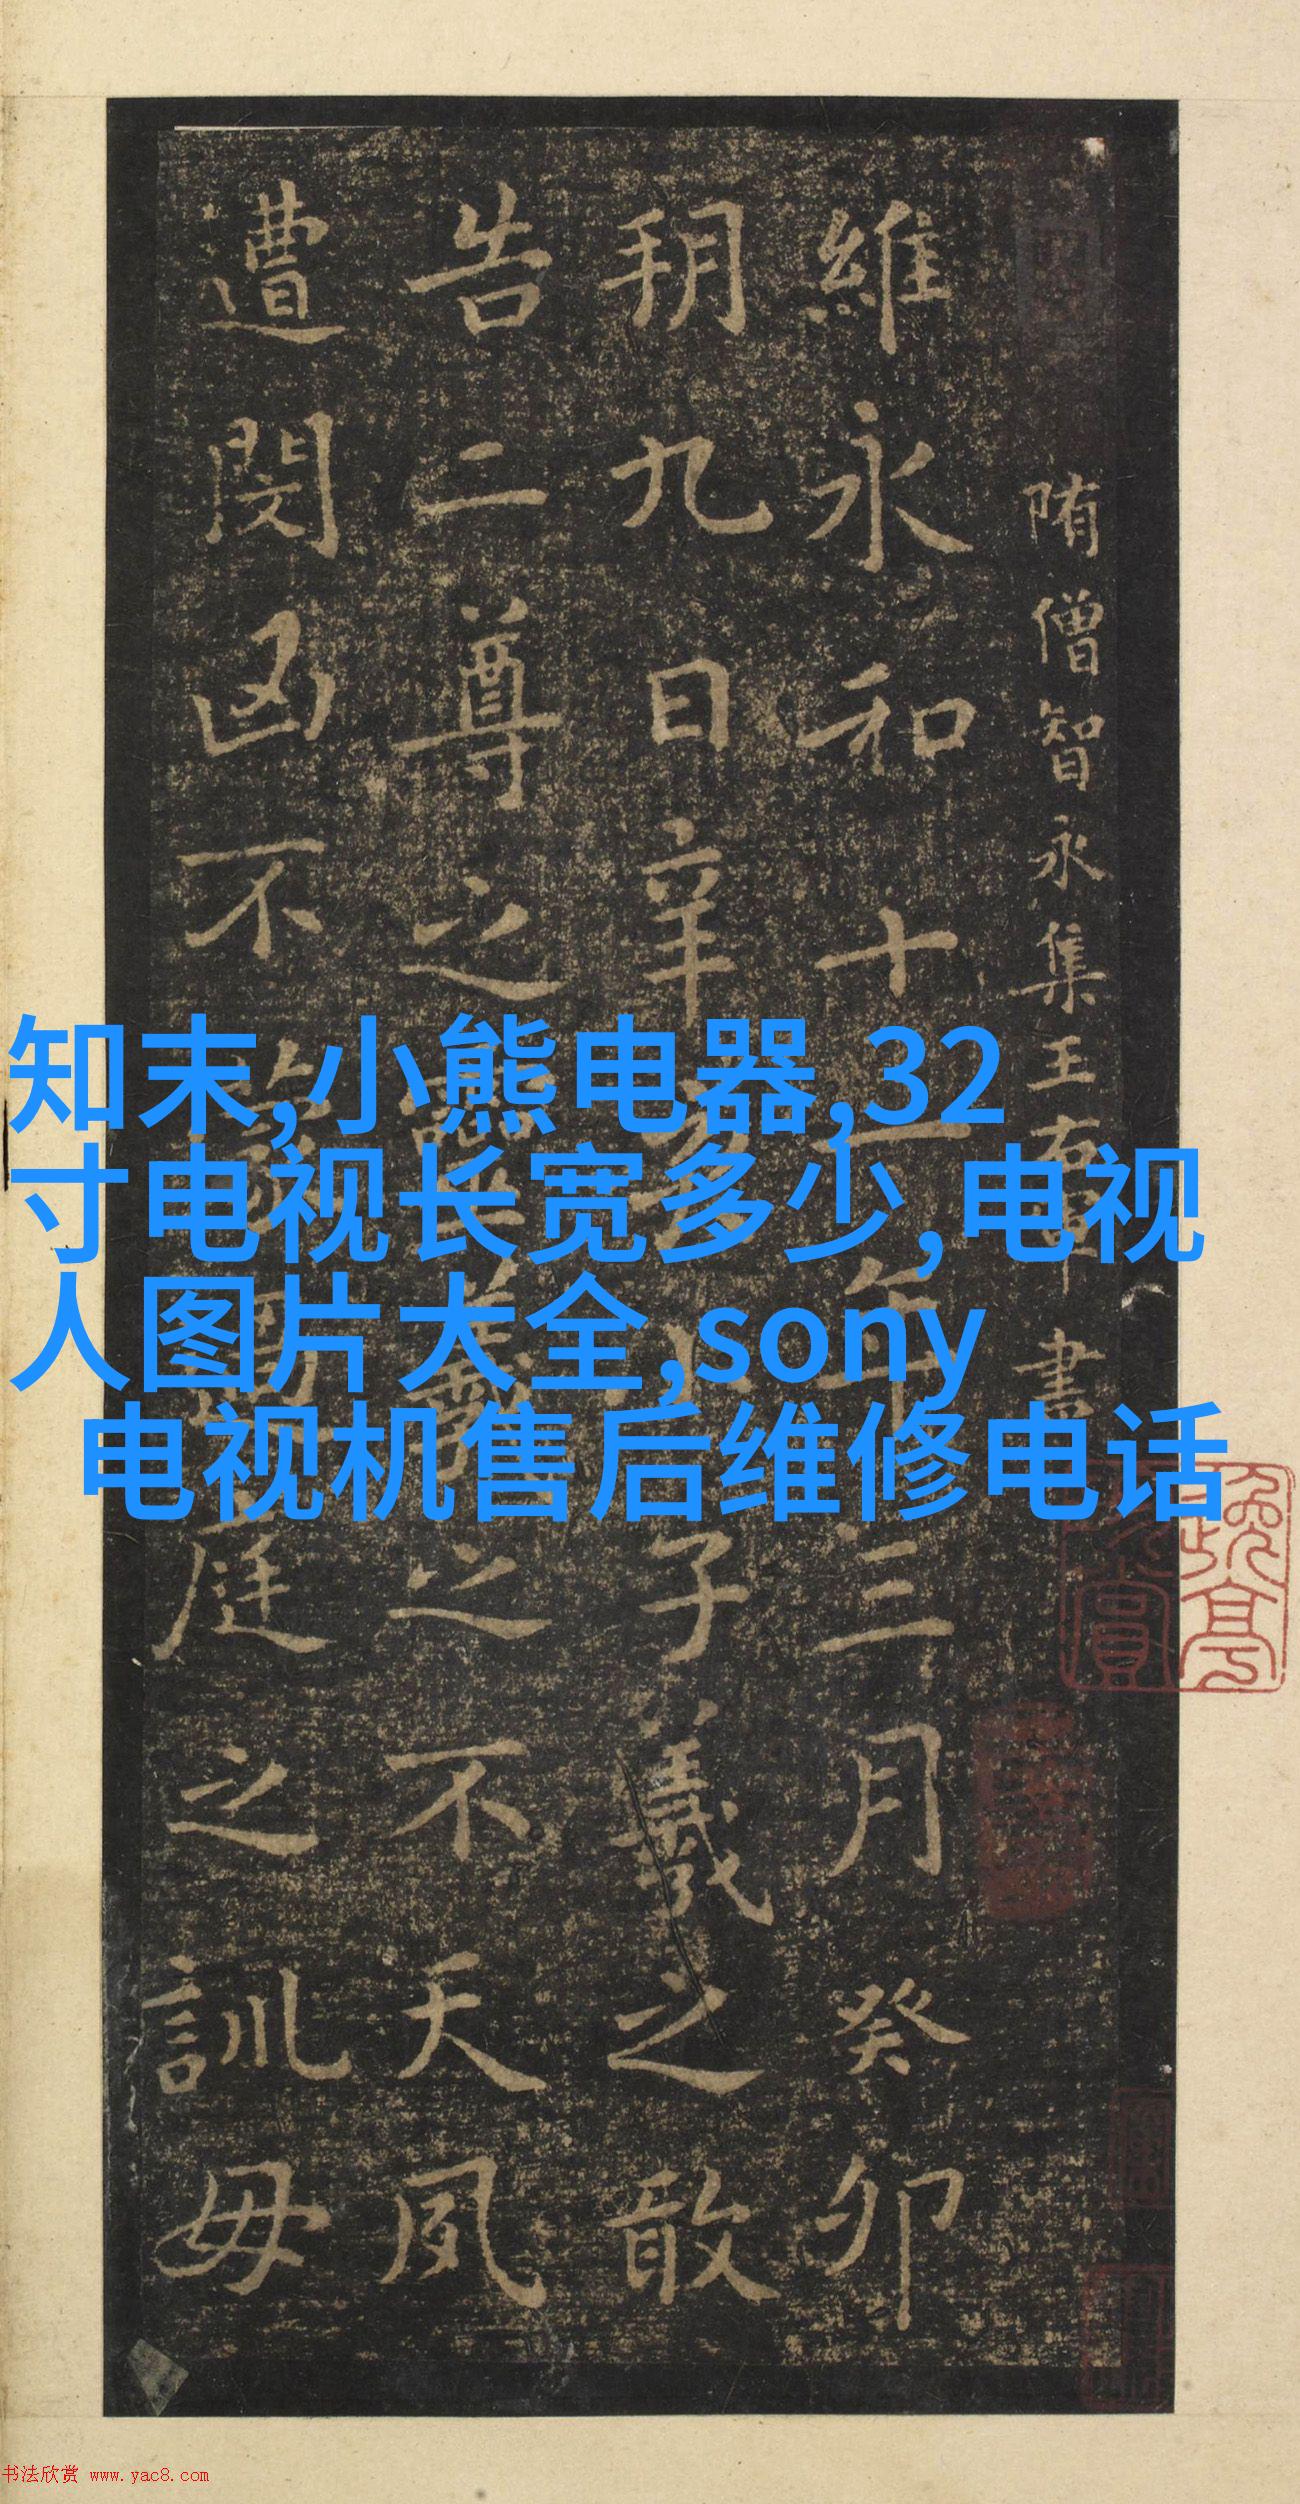 隋僧智永集王右軍書
維永和十一年三月癸卯
朔九日辛亥小子羲之敢
告二尊之靈羲之不天夙
遭閔凶不蒙過庭之訓毋
知末,小熊电器,32
寸电视长宽多少,电视
人图片大全,sony
电视机售后维修电话
书法欣赏 www.yac8.com